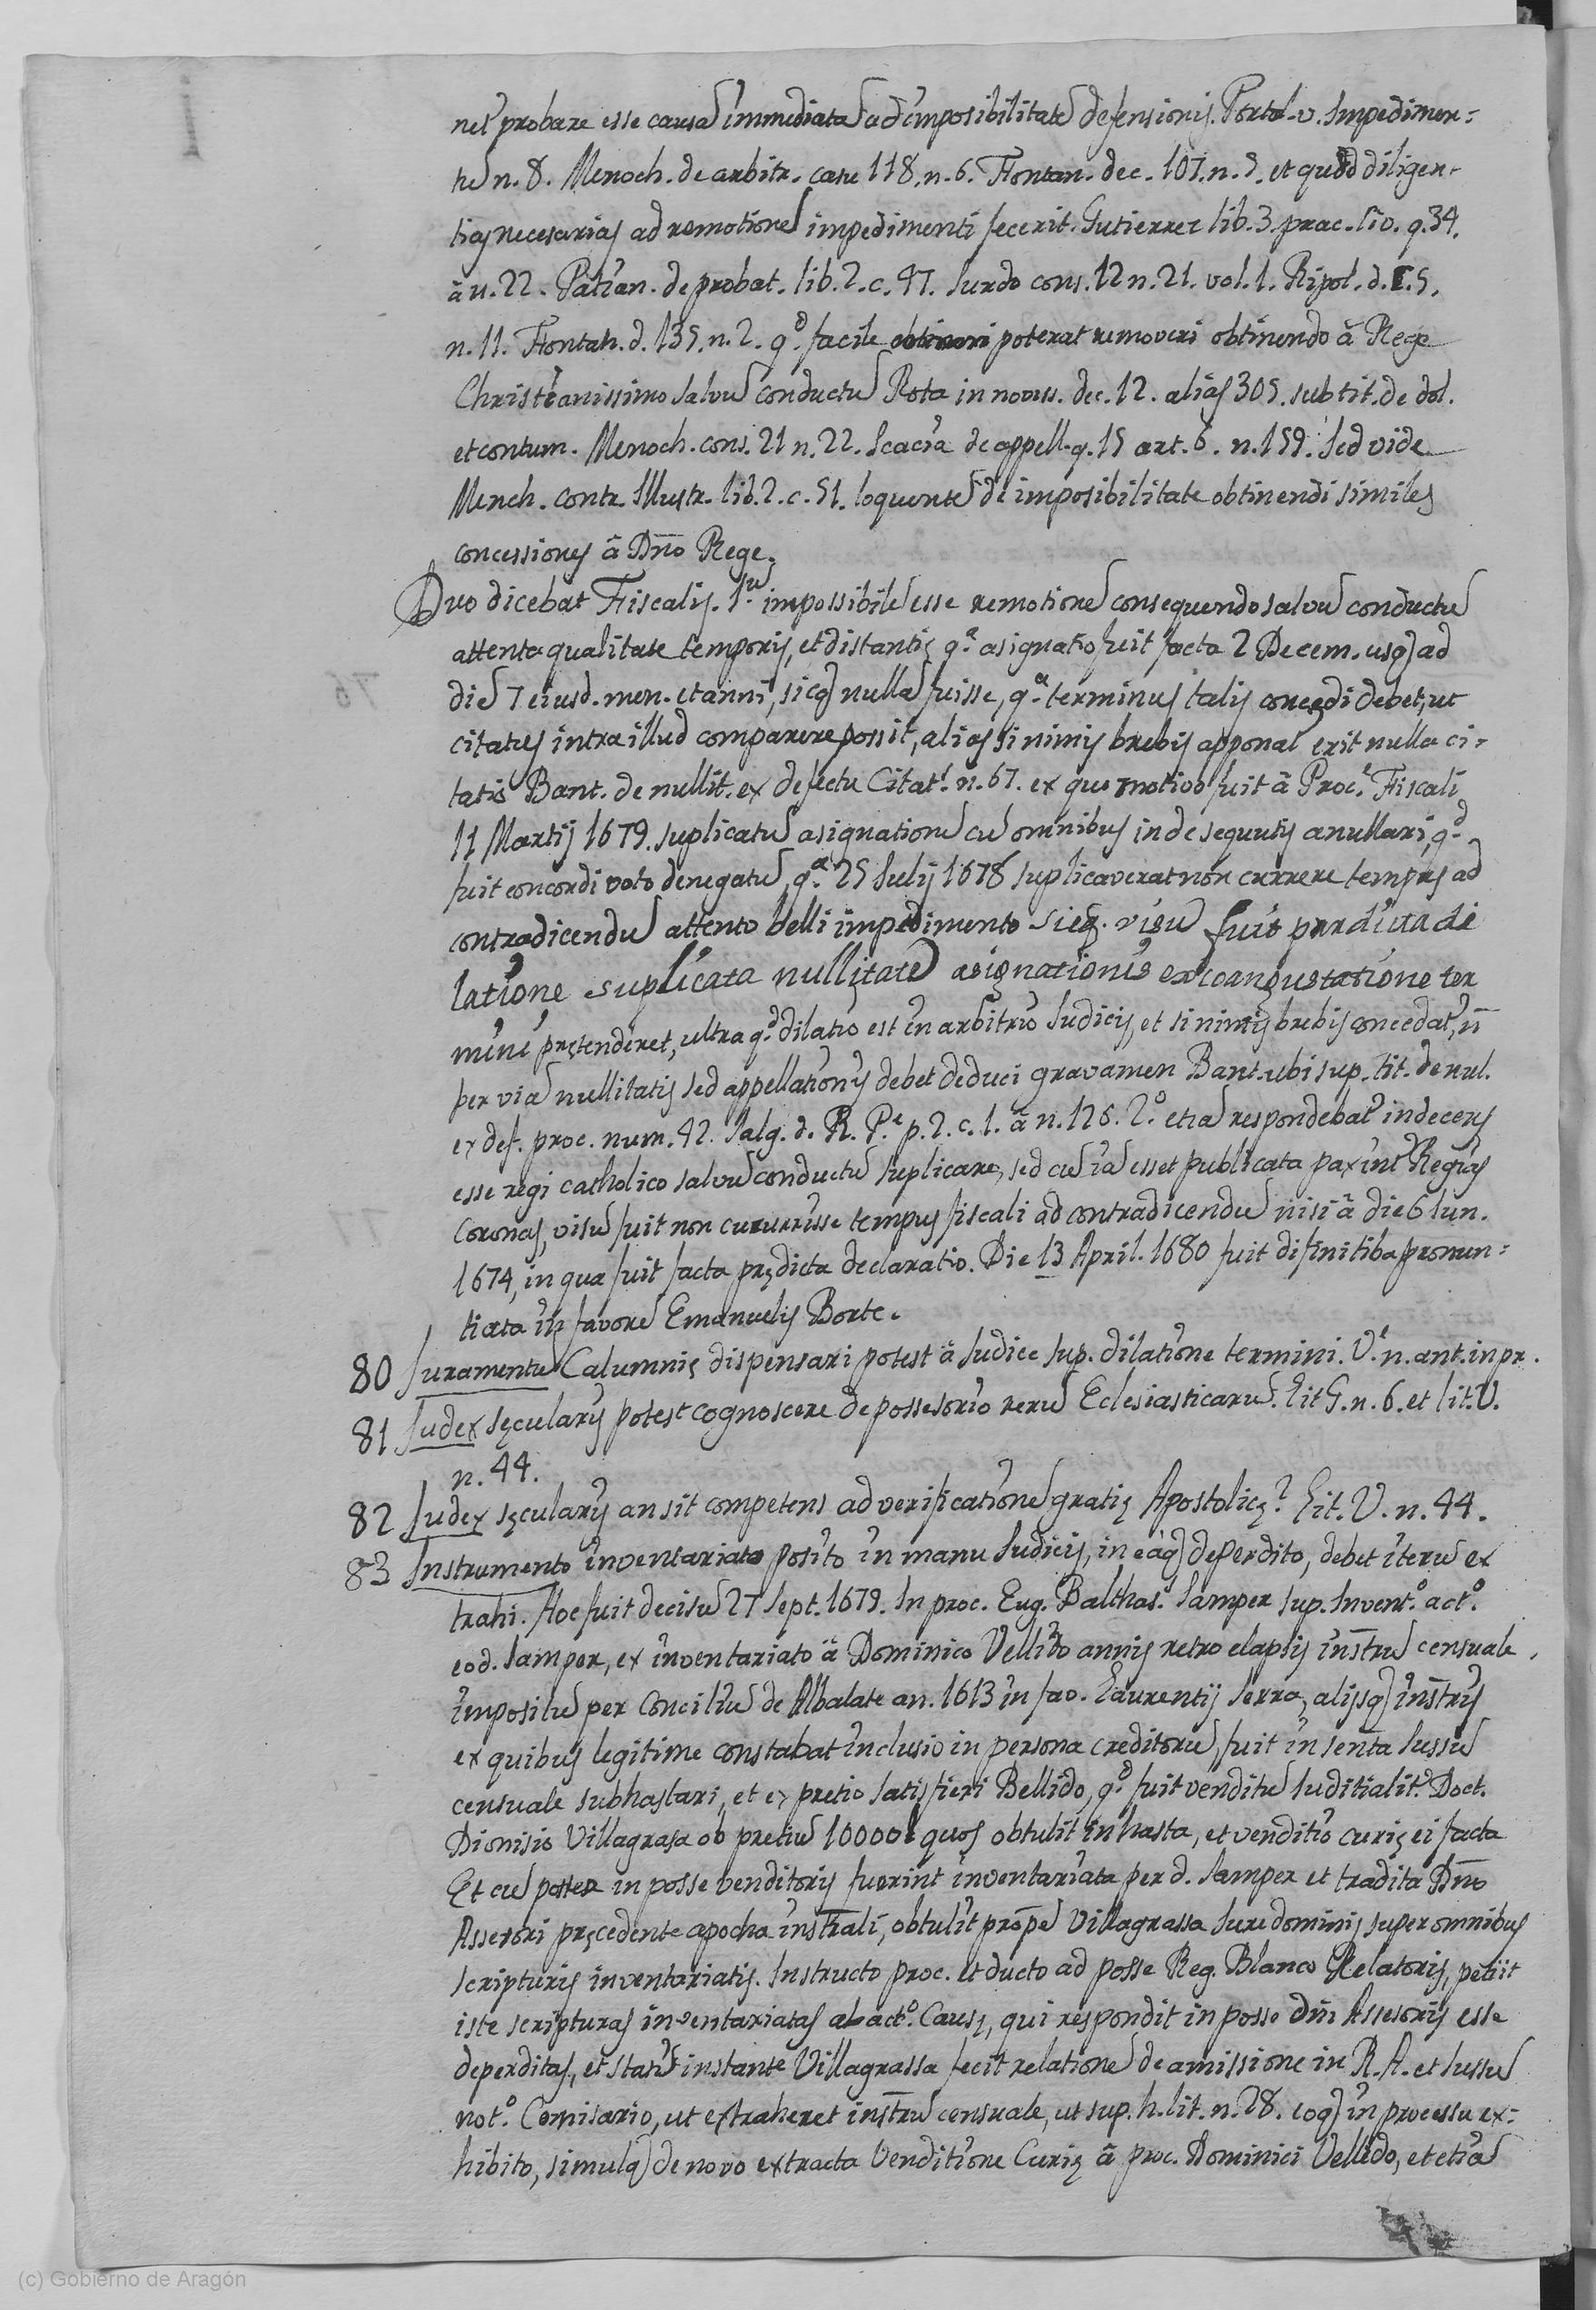 net probare esse causã immediatã ad imposibilitatẽ defensionis. Portol. v. Impedimen=
tũ n. 8. Menoch. de arbitr. casu 118. n. 6. Fontan. dec. 107. n. 9. et quod diligen-
tias necesarias ad remotionẽ impedimenti fecerit. Gutierrez lib. 3. prac. q. 34.
à n. 22. Patian. de probat. lib. 2. c. 47. Surdo cons. 12 n. 21. vol. 1. Ripol. d. 5.
n. 11. Fontan. d. 135. n. 2. qd. facile poterat removeri obtinendo à Rege
Christianissimo salvũ conductũ Rota in noviss. dec. 12. alias 305. sub tit. de dol.
et contum. Menoch. cons. 21 n. 22. Scacia de appell. q. 15 art. 6. n. 159. Sed vide
Mench. contr. Illustr. lib. 2. c. 51. loquentẽ de imposibilitate obtinendi similes
concessiones à Dño Rege.
Duo dicebat Fiscalis. 1ũ. impossibilẽ esse remotionẽ consequendo salvũ conductũ
attenta qualitate temporis, et distantię qa. asignatio fuit facta 2 Decem. usq) ad
diẽ 7 eiusd. men. et anni, sicq) nullã fuisse, qa. terminus talis concędi debet, ut
citatus intra illud comparere possit, alias si nimis brebis apponat' erit nulla ci=
tatio Bant. de nullit. ex defectu Citat. n. 67. ex quo motivo fuit à Proc.e Fiscali
11 Martij 1679. suplicatũ asignationẽ cũ omnibus inde sequutis anullari, qd.
fuit concordi voto denegatũ, qa. 25 Iulij 1678 suplicaverat non currere tempus ad
contradicendũ attento belli impedimento sicq. visũ fuit per dicta di
latione suplicata nullitatẽ asignationis ex coangustatione ter
mini pretenderet, ultra qd. dilatio est in arbitrio Iudicis, et si nimis brebis concedat', ñ
per viã nullitatis sed appellationis debet deduci gravamen Bant. ubi sup. tit. de nul.
ex def. proc. num. 42. Salg. d. R. P.e p. 2. c. 1. à n. 126. 2º etiã respondebat' indecens
esse regi catholico salvũ conductũ suplicare, sed cũ iã esset publicata pax int' Regias
Coronas, visũ fuit non cucurrisse tempus fiscali ad contradicendũ nisi à die 6 Iun.
1674, in qua fuit facta prędicta declaratio. Die 13 April. 1680 fuit difinitiba pronun=
tiata in favorẽ Emanuelis Borte.
80 Iuramentũ Calumnię dispensari potest à Iudice sup. dilatione termini. V.e n. ant. in pr.
81 Iudex sęcularis potest cognoscere de possesorio rerũ Eclesiasticarũ. Lit G. n. 6. et lit. V.
n. 44.
82 Iudex sęcularis an sit competens ad verificationẽ gratię Apostolicę? Lit. V. n. 44.
83 Instrumento inventariato posito in manu Iudicis, in eaq) deperdito, debet iterũ ex
trahi. Hoc fuit decisũ 27 Sept. 1679. In proc. Eug. Balthas. Samper sup. Invent.º act.º
eod. Samper, ex inventariato à Dominico Vellido annis retro elapsis instrũ censuale
impositũ per Conciliũ de Albalate an. 1613 in fao. Laurentij Serra, alijsq) instris
ex quibus legitime constabat inclusio in persona creditorũ, fuit in senta Iussũ
censuale subhastari, et ex pretio satisfieri Bellido, qd. fuit venditũ Iuditialit' Doct.
Dionisio Villagrasa ob pretiũ 10000 quos obtulit in hasta, et venditio curię ei facta
Et cũ postea in posse venditoris fuerint inventariata per d. Samper et tradita Dño
Assesori pręcedente apocha instrali, obtulit propẽ Villagrassa Iure dominij super omnibus
scripturis inventariatis. Instructo proc. et ducto ad posse Reg. Blanco Relatoris, petiit
iste scripturas inventariatas ab act.º Causę, qui respondit in posse dñi Assesoris esse
deperditas, et statim instante Villagrassa fecit relationẽ de amissione in R. A. et Iussũ
not.º Comisario, ut extraheret instrũ censuale, ut sup. h. lit. n. 28. eoq) in processu ex=
hibito, simulq) de novo extracta Venditione Curię à proc. Dominici Vellido, et etiã
(c) Gobierno de Aragón